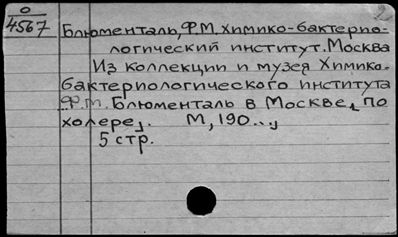 0
4567
Блюменталь, Ф.М. Химико-бактерио-
логический институт. Москва
Из коллекции и музея Химико-
бактериологического института
Ф.М. Блюменталь в Москве, по
холере,. М, 190...,
5 стр.